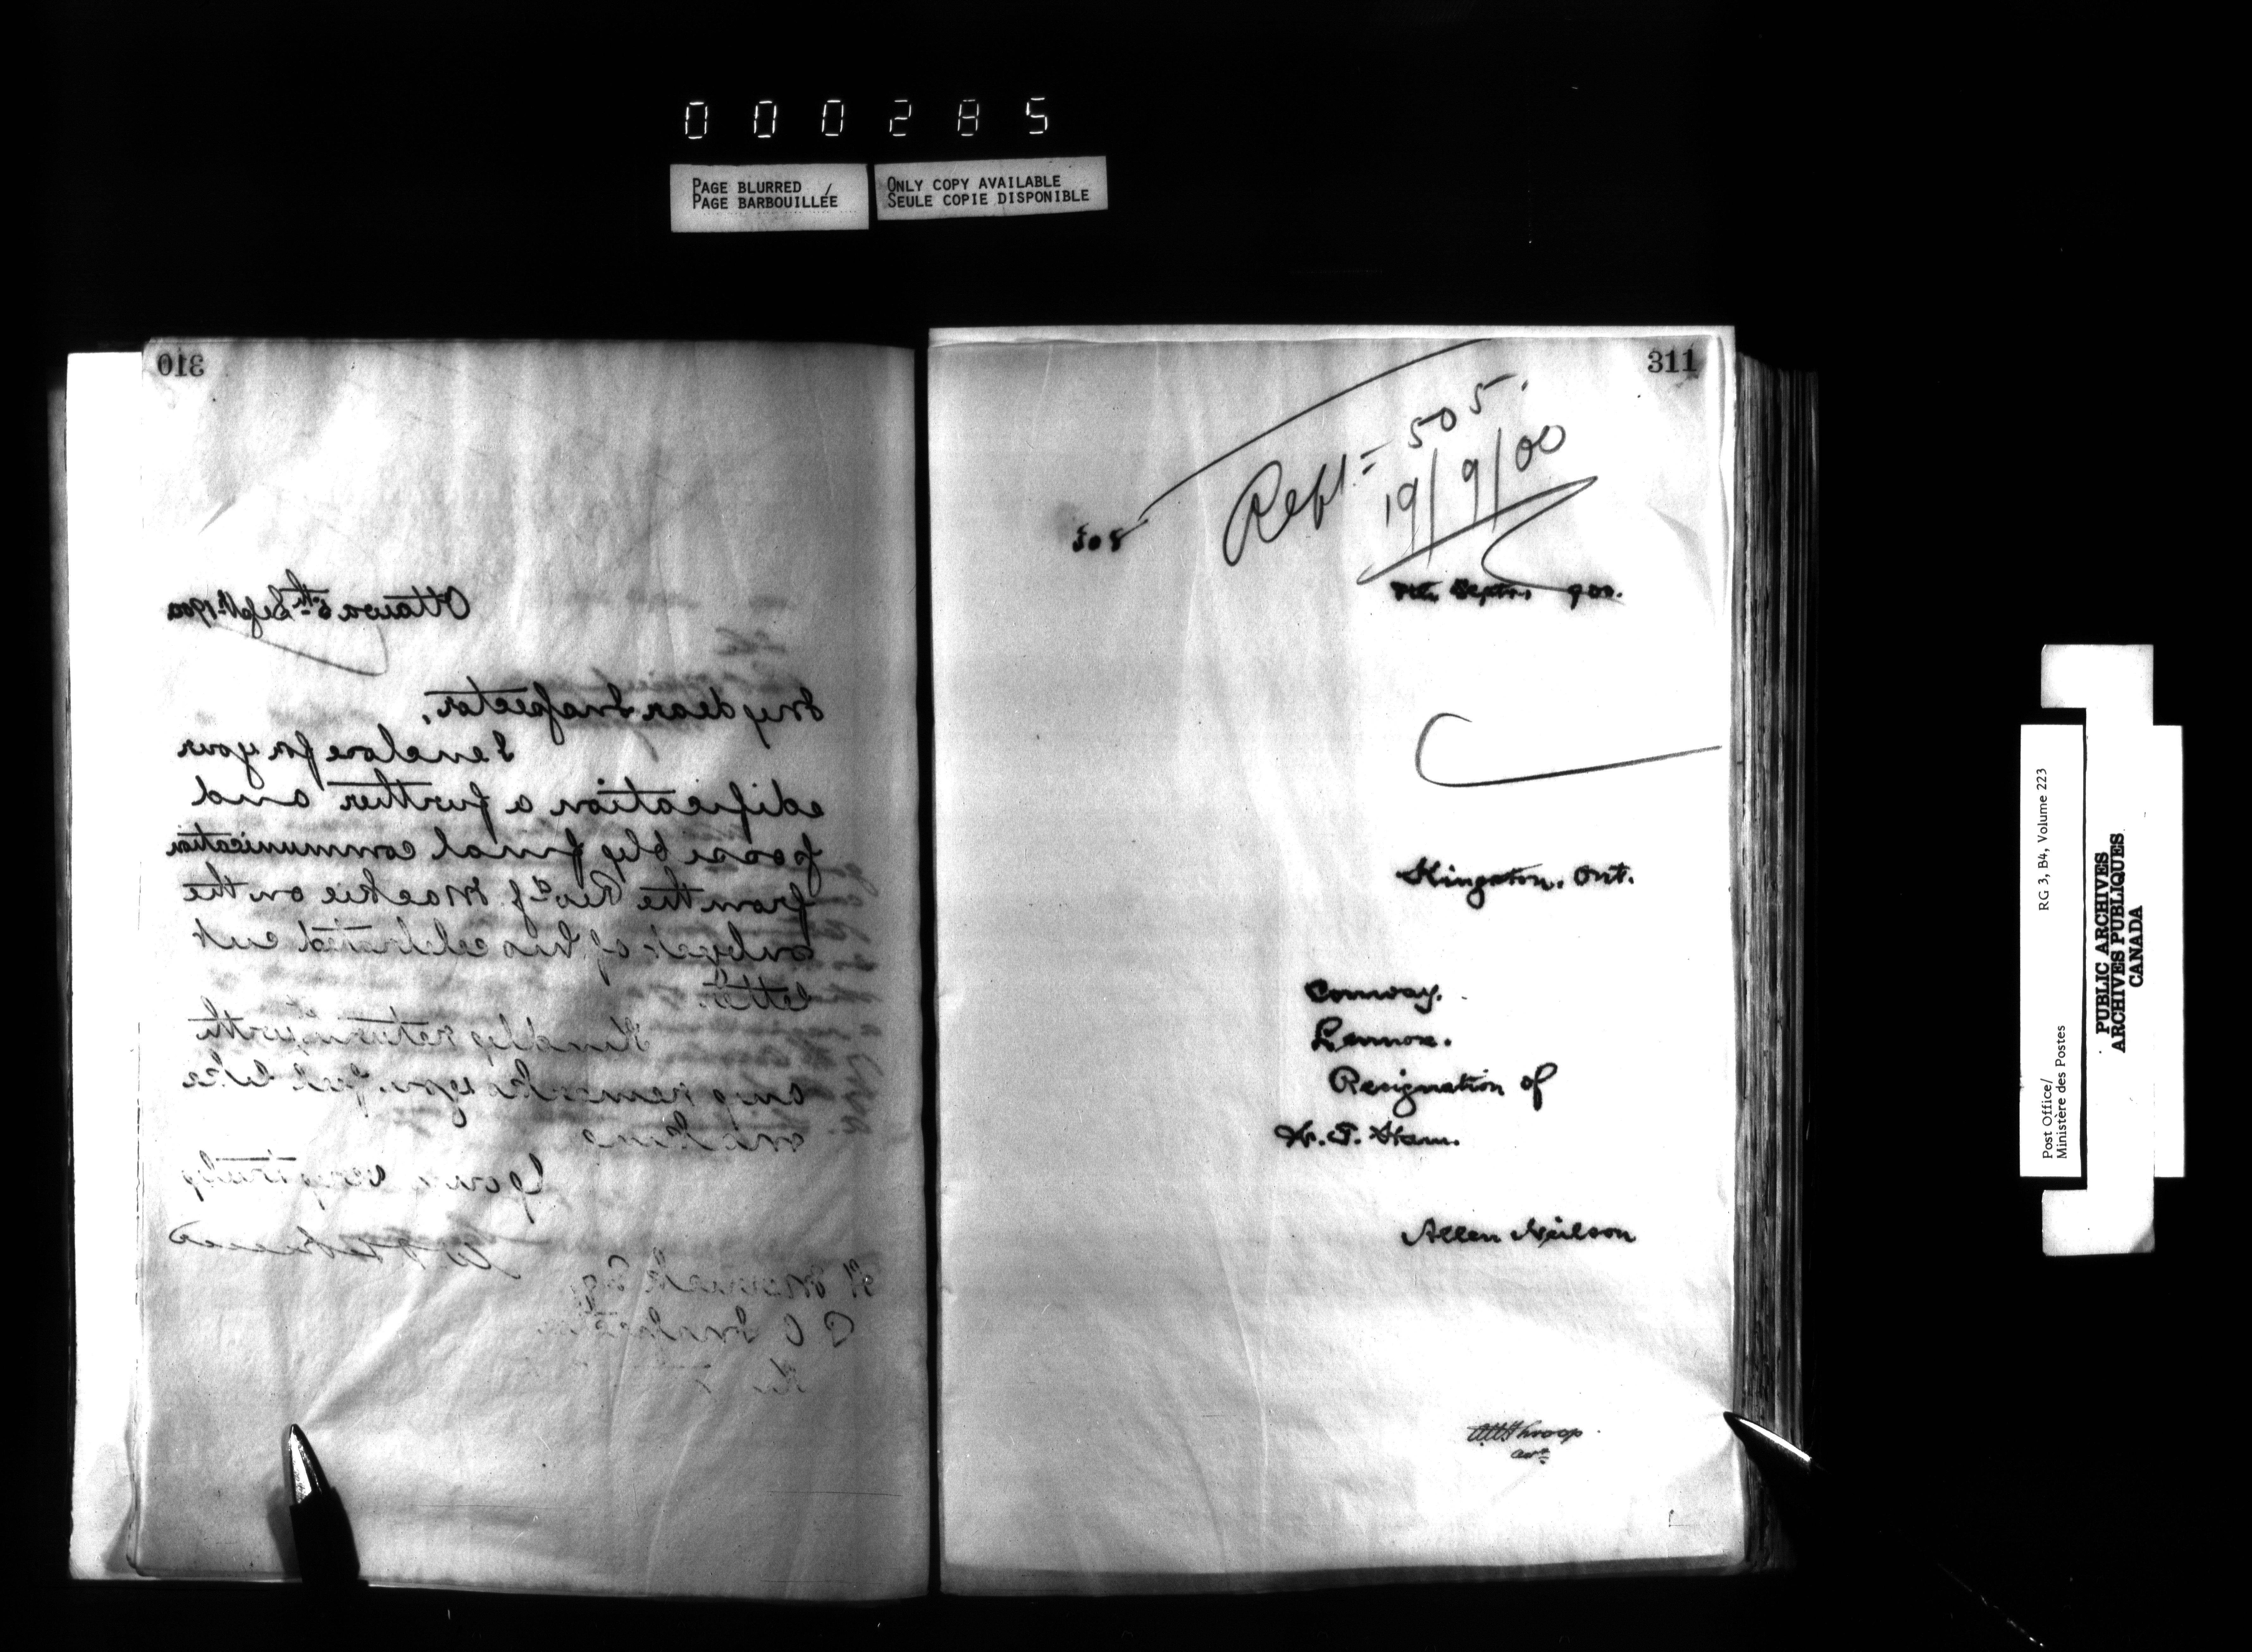 000285
PAGE BLURRED / ONLY COPY AVAILABLE
PAGE BARBOUILLÉE SEULE COPIE DISPONIBLE
310
Ottawa 5th Sept. 1900
My dear Inspector,
I enclose for your
edification a further and
possibly final communication
from the Revd J. Mackie on the
subject of his celebrated cut
letter.
Kindly return with
any remarks you feel like
making
Yours very truly
H Merrick Esq
P O Inspector
311
Refd = 505.
19/9/00
308
7th Septr. 900.
Kingston. Ont.
Conway.
Lennox.
Resignation of
W. F. Ham.
Allen Neilson
Throop
Post Office/
Ministère des Postes
RG 3, B4, Volume 223
PUBLIC ARCHIVES
ARCHIVES PUBLIQUES
CANADA